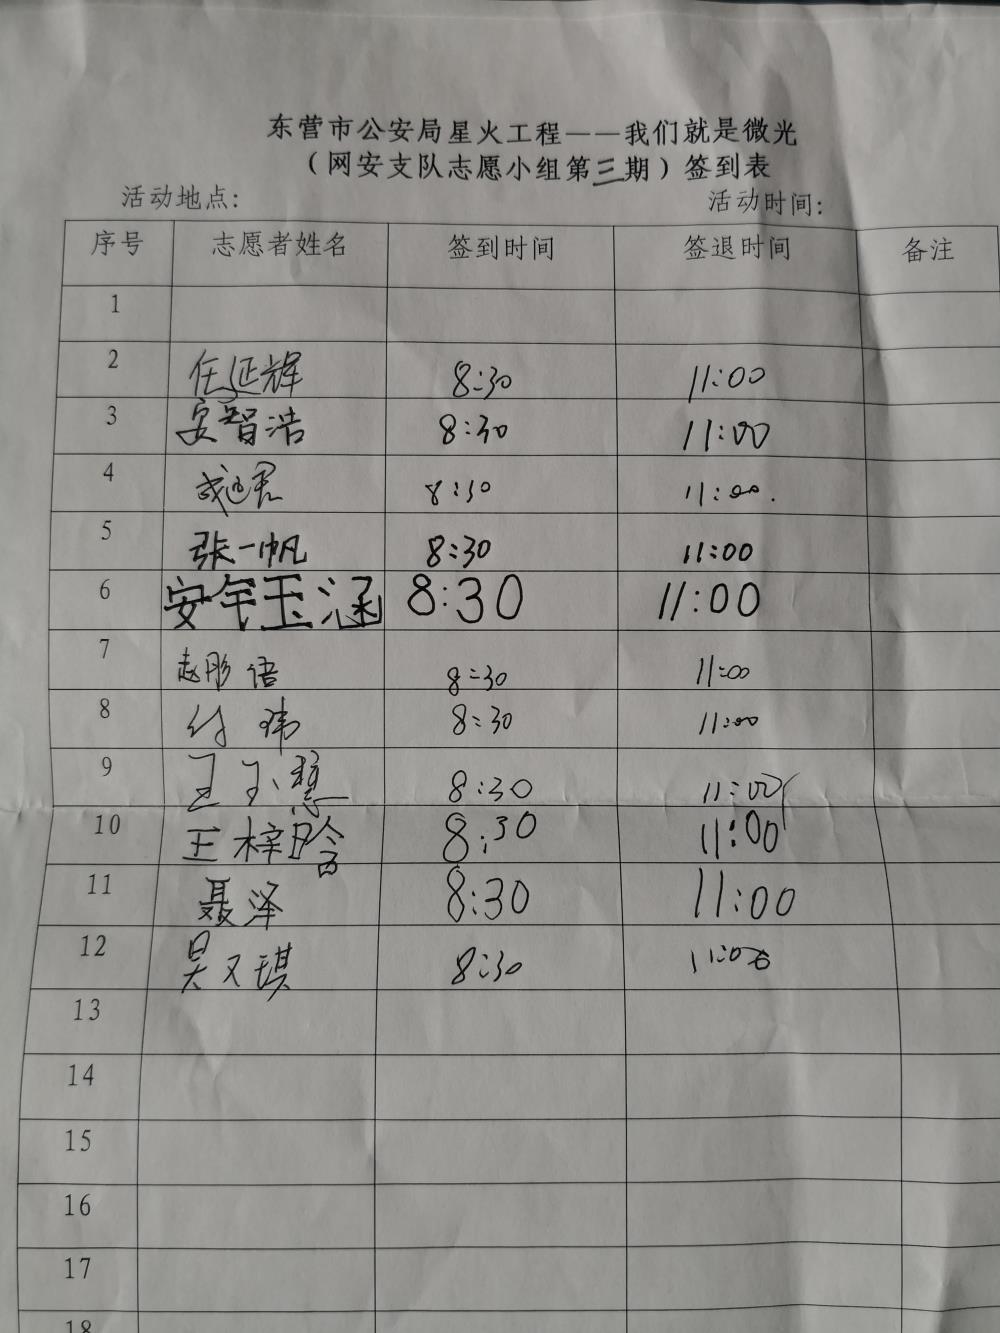 东营市公安局星火工程——我们就是微光
（网安支队志愿小组第三期）签到表
活动地点： 活动时间：
序号 志愿者姓名 签到时间 签退时间 备注
1
2 任延辉 8:30 11:00
3 安智浩 8:30 11:00
4 8:30 11:00.
5 张一帆 8:30 11:00
6 安年玉涵 8:30 11:00
7 赵彤语 8:30 11:00
8 付玮 8:30 11:00
9 王玉慧 8:30 11:00
10 王梓晗 8:30 11:00
11 聂泽 8:30 11:00
12 吴又琪 8:30 11:00
13
14
15
16
17
18